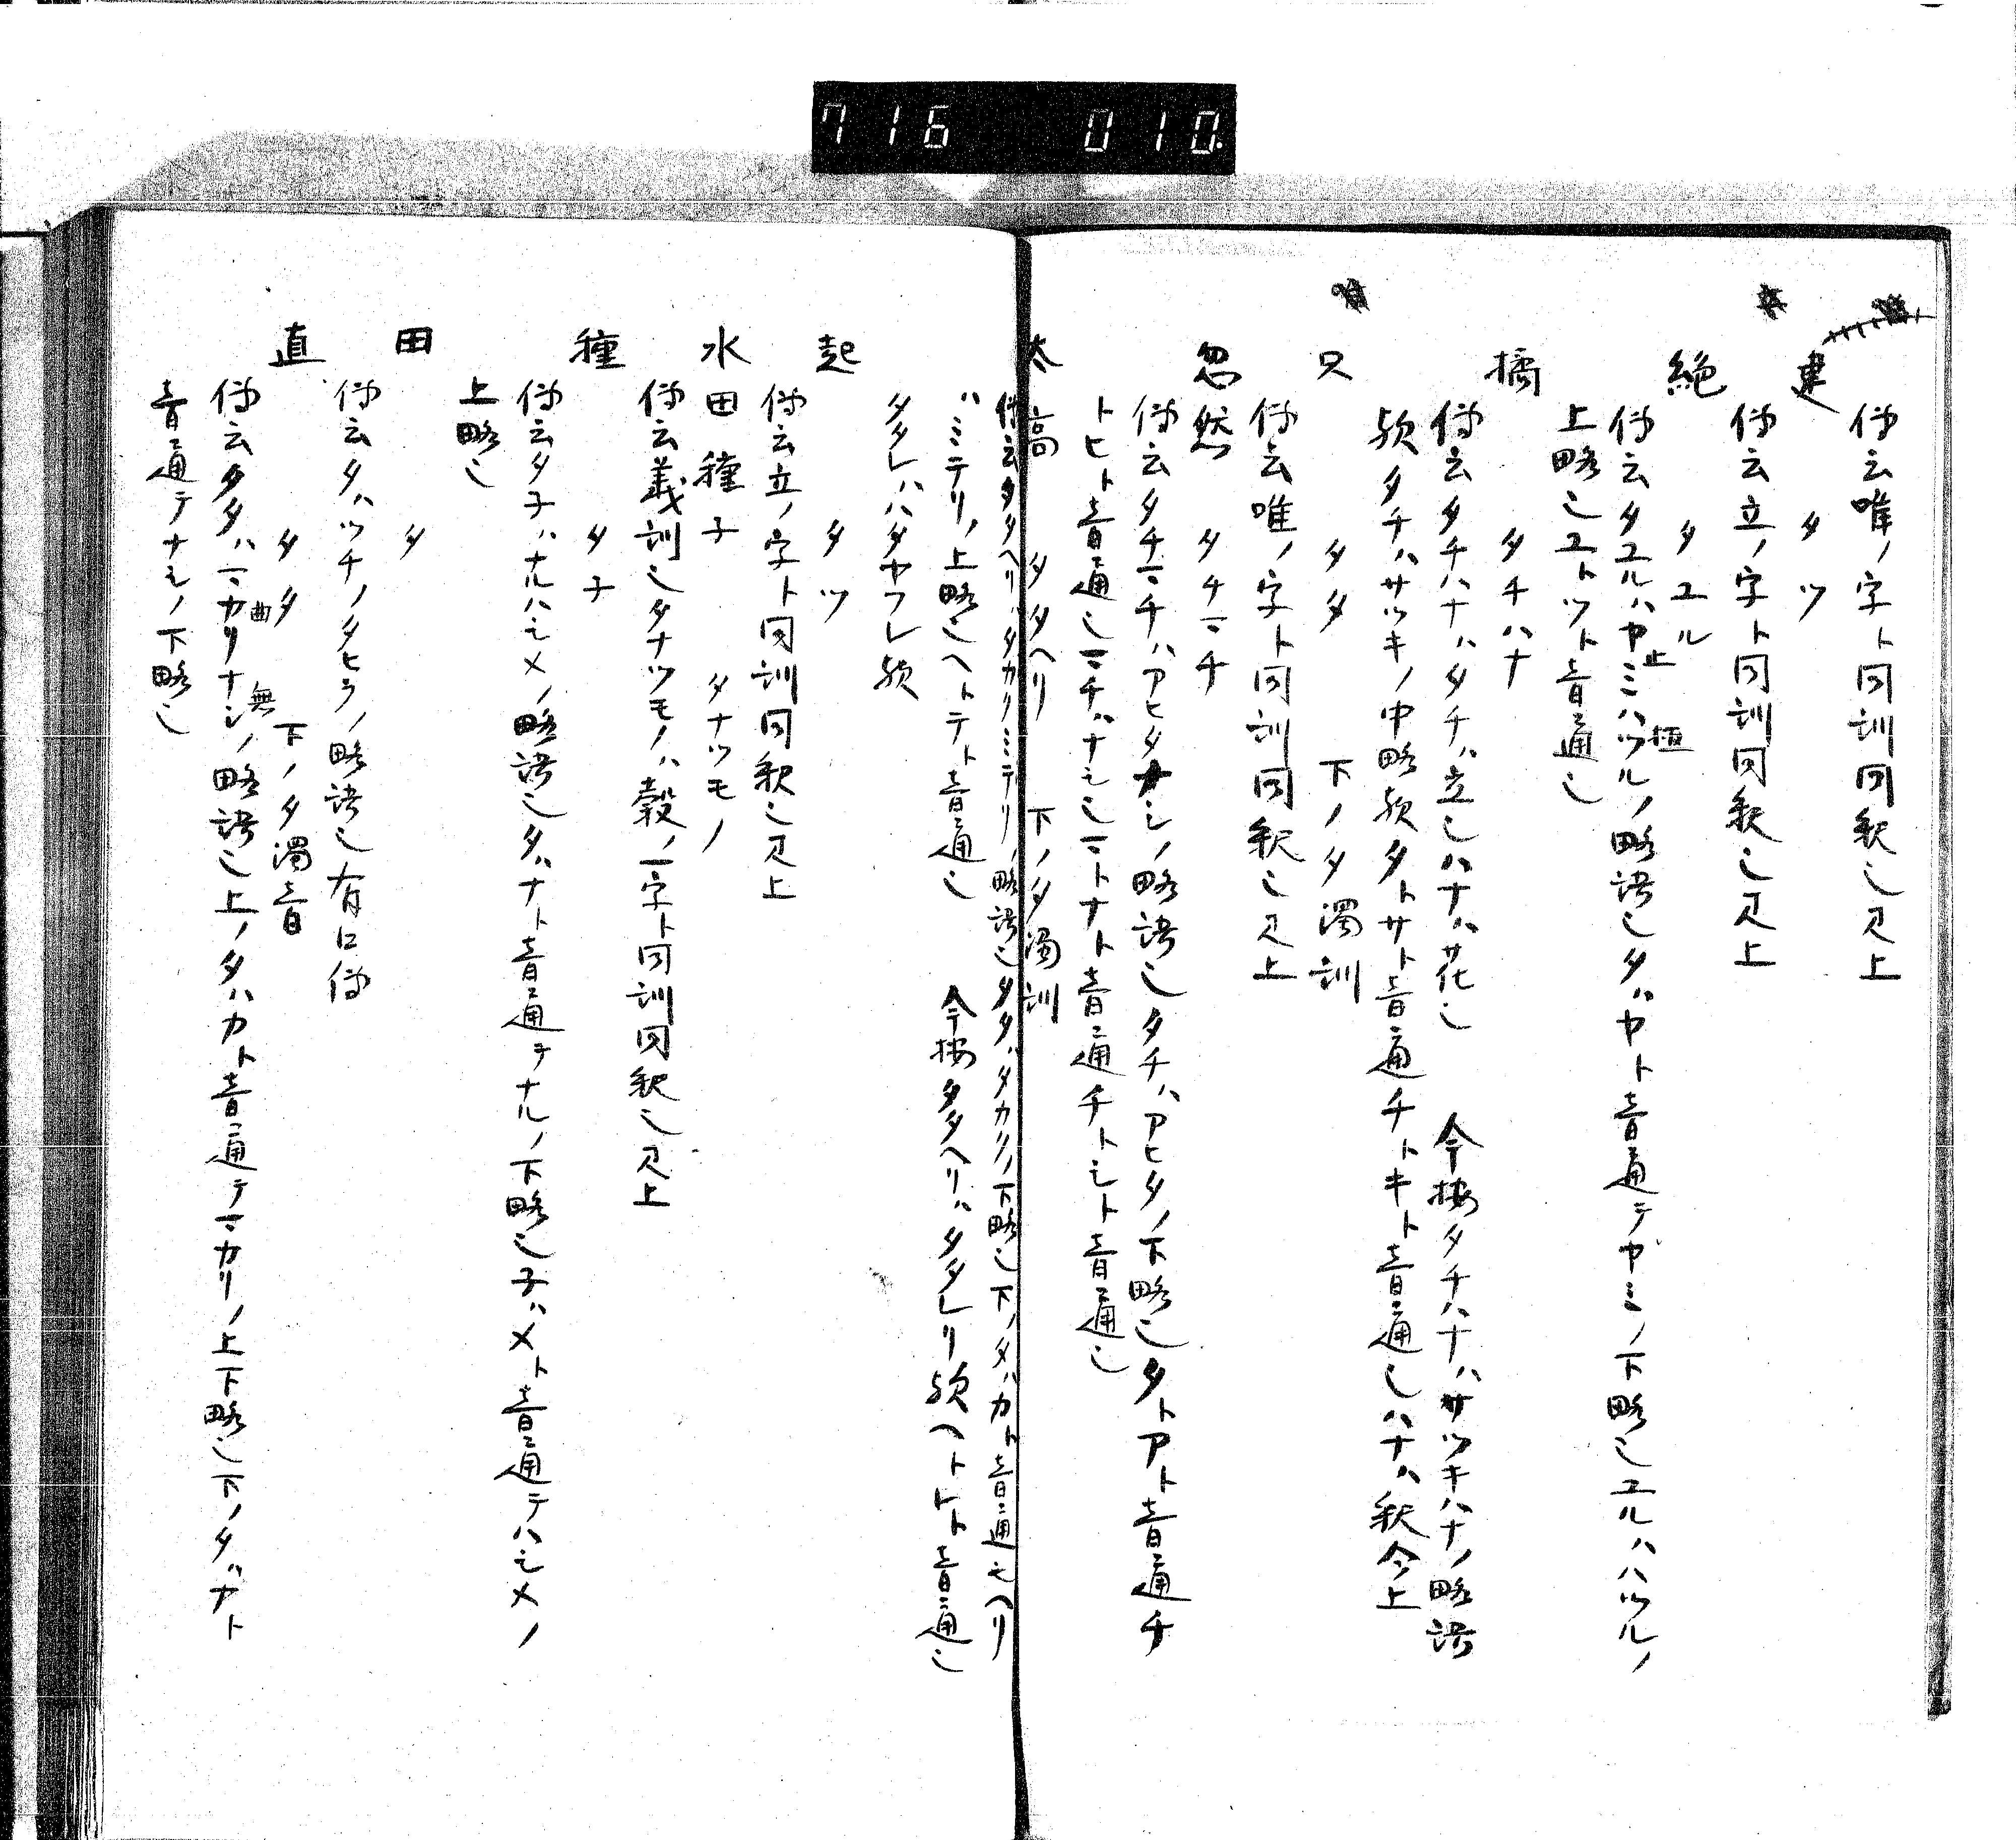 716 010
伝云唯ノ字ト同訓同釈也見上
建 タツ
伝云立ノ字ト同訓同釈也見上
絶 タユル
伝云タユルハヤミハツルノ略語也タハヤト音通テヤミノ下略也ユルハハツルノ
止 極
上略也ユトツト音通也
橘 タチハナ
伝云タチハナハタチハ立也ハナハ花也 今按タチハナハサツキハナノ略語
歟タチハサツキノ中略歟タトサト音通チトキト音通也ハナハ釈今上
只 タタ 下ノタ濁訓
伝云唯ノ字ト同訓同釈也見上
忽然 タチマチ
伝云タチマチハアヒタナシノ略語也タチハアヒタノ下略也タトアト音通チ
トヒト音通也マチハナシ也マトナト音通チトシト音通也
太高 タタヘリ 下ノタ濁訓
伝云タタヘリハタカリミテリノ略語也タタハタカリノ下略也下ノタハカト音通也ヘリ
ハミテリノ上略也ヘトテト音通也 今按タタヘリハタタレリ歟ヘトレト音通也
タタレハタヤフレ歟
起 タツ
伝云立ノ字ト同訓同釈也見上
水田種子 タナツモノ
伝云義訓也タナツモノハ穀ノ一字ト同訓同釈也見上
種 タ子
伝云タ子ハナルハシメノ略語也タハナト音通テナルノ下略也子ハメト音通テハシメノ
上略也
田 タ
伝云タハツチノタヒラノ略語也有口伝
直 タタ 下ノタ濁音
伝云タタハマカリナシノ略語也上ノタハカト音通テマカリノ上下略也下ノタハナト
曲 無
音通テナシノ下略也